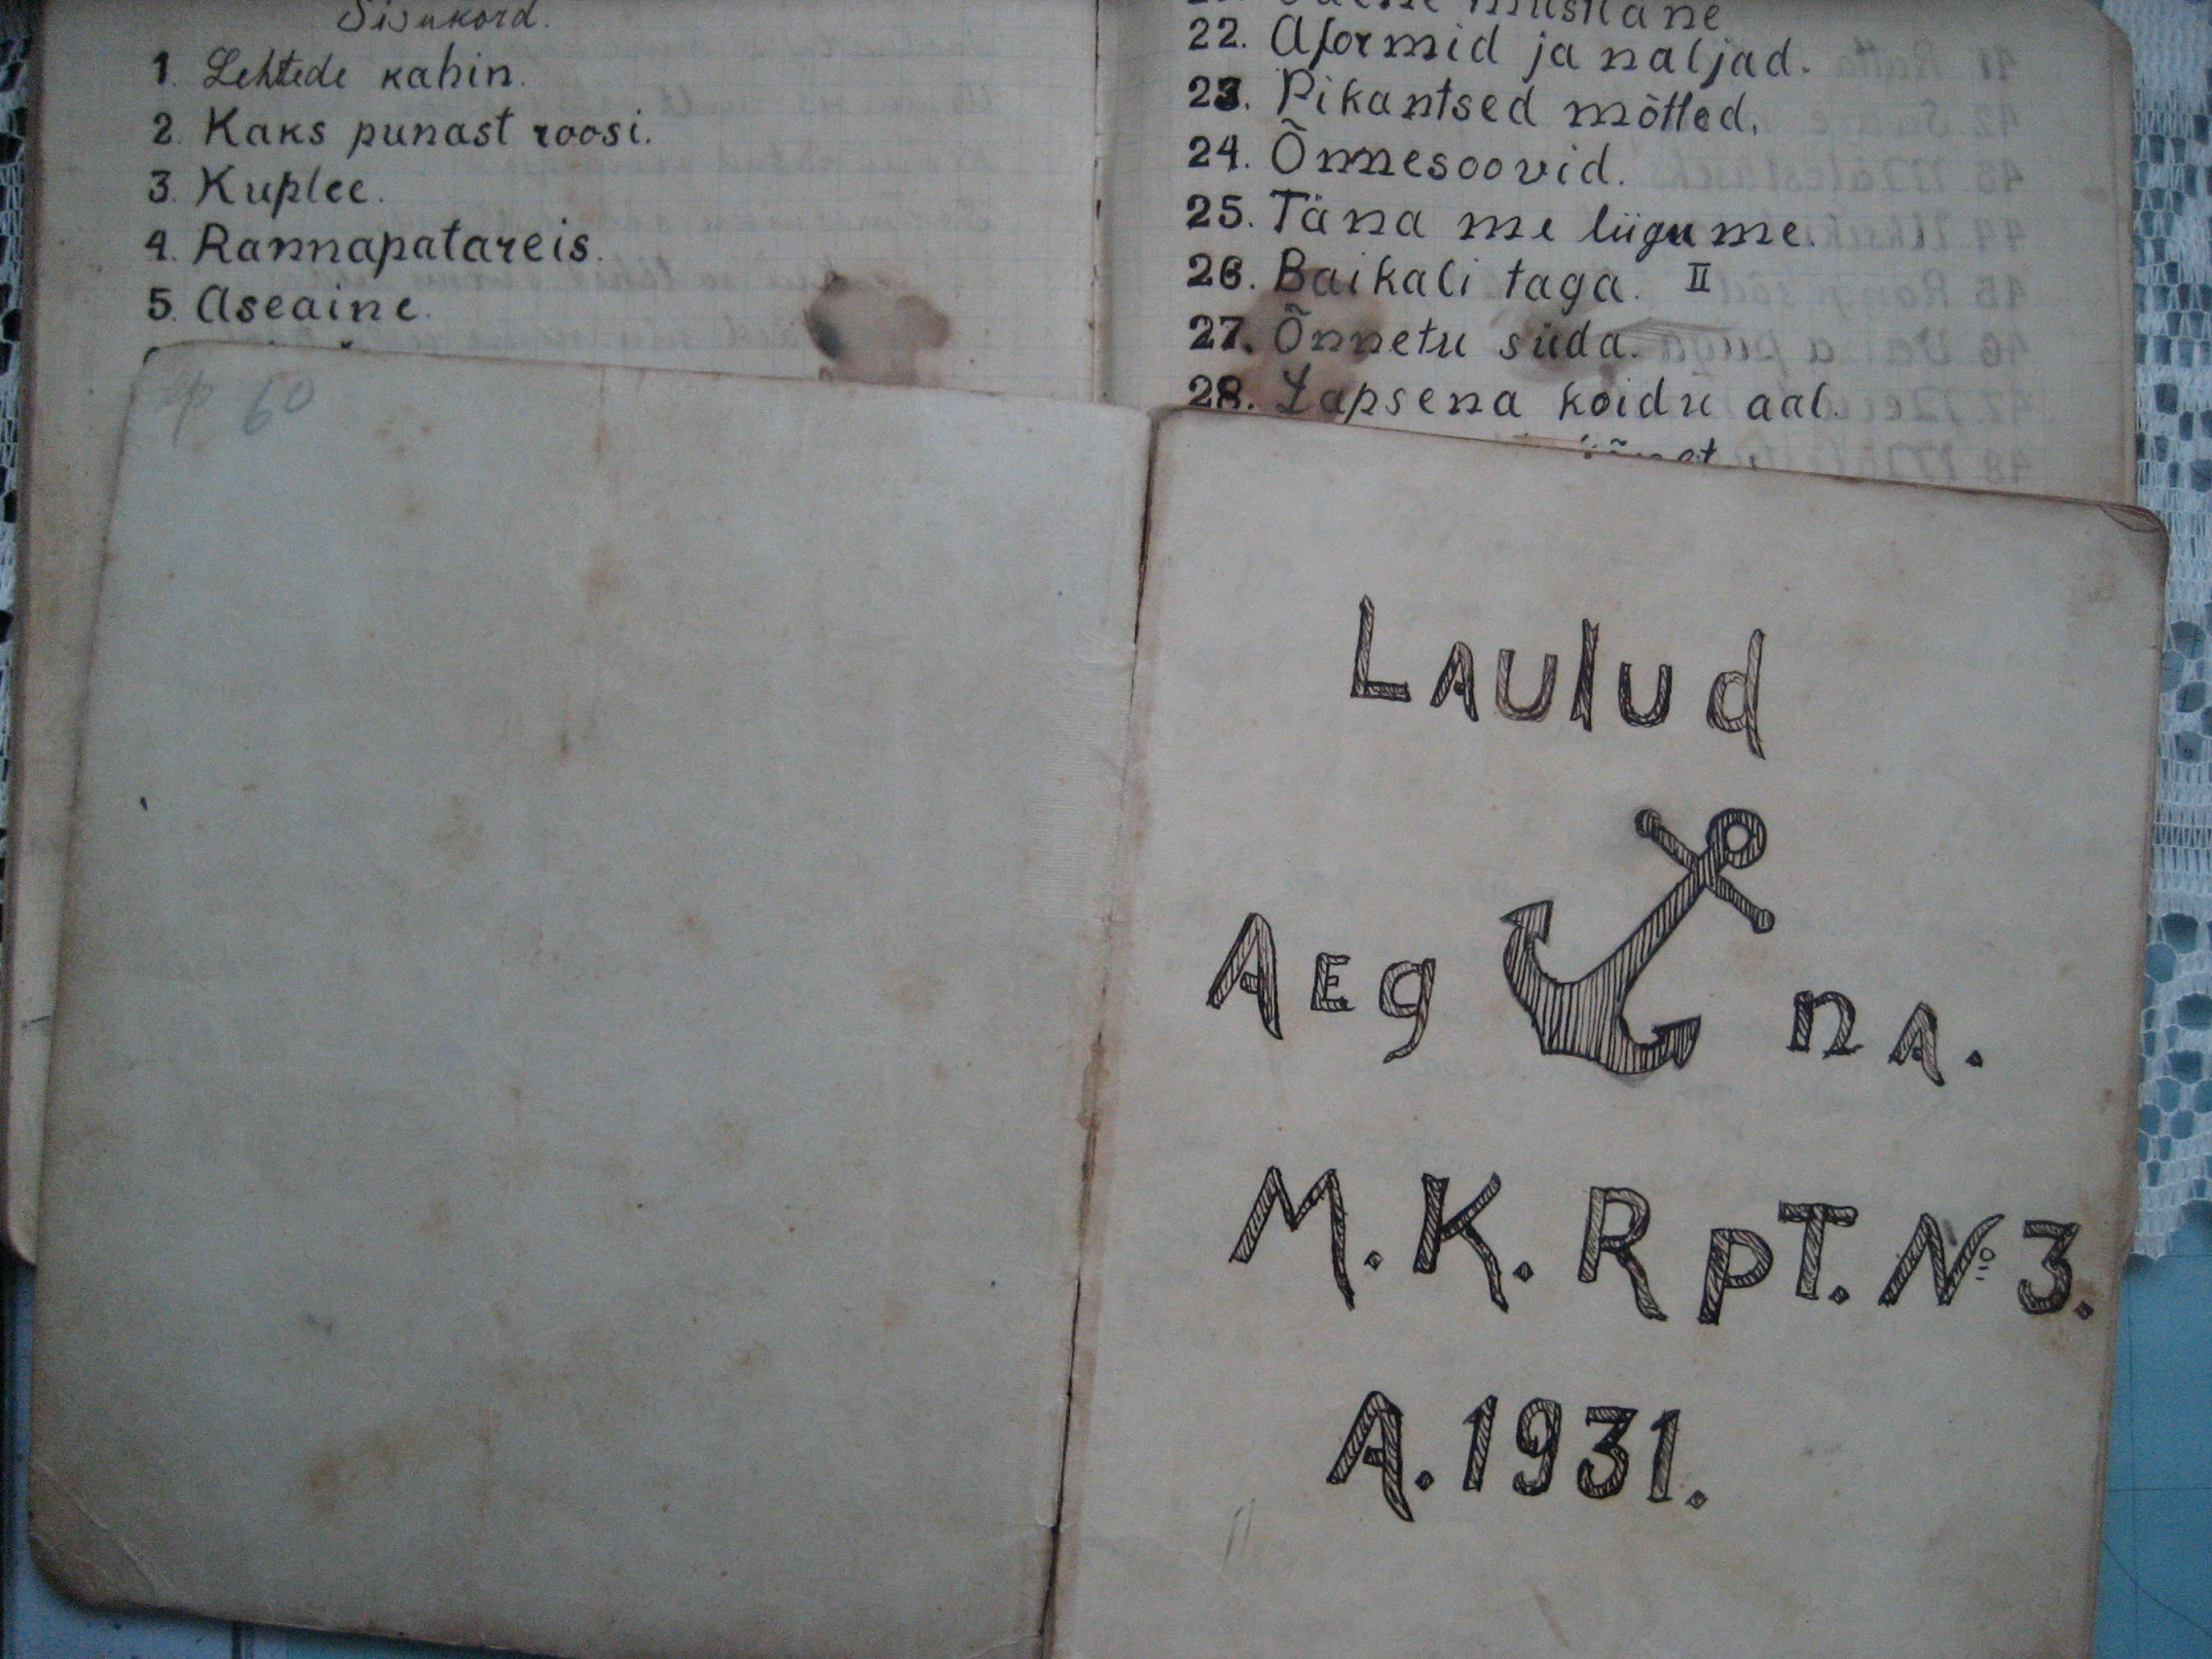 Sisukord.
1. Lehtede kahin.
2. Kaks punast roosi.
3. Kuplee.
4. Rannapatareis.
5. Aseaine.
mustlane
22. Aformid ja naljad.
23. Pikantsed mõtted.
24. Õnnesoovid.
25. Täna me liigume.
26. Baikali taga. II
27. Õnnetu süda.
28. Lapsena koidu aal.
60
Laulud
Aegna.
M.K.RPT. № 3.
A. 1931.